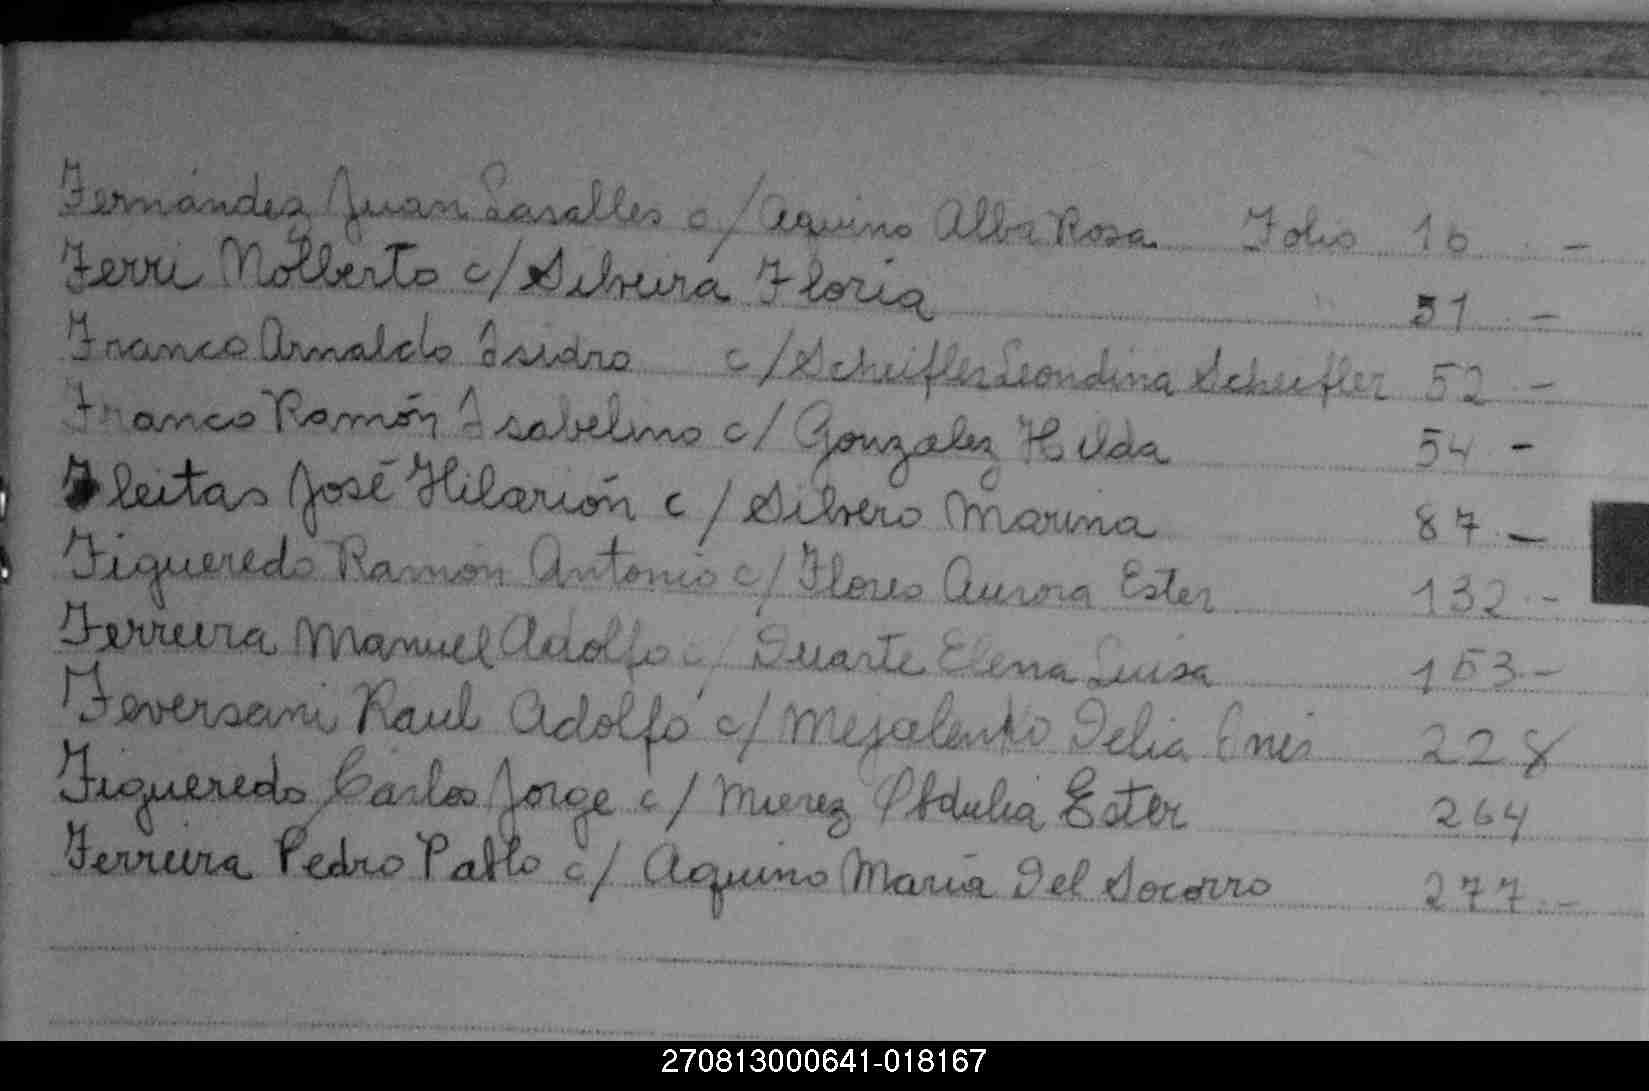 Fernández Juan Lasalles c/ Aquino Alba Rosa Folio 16 -
Ferri Nolberto c/ Silveira Floria " 31 -
Franco Arnaldo Isidro c/ Scheifler Leondina Scheifler 52 -
Franco Ramón Isabelino c/ Gonzalez Hilda 54 -
Fleitas José Hilarión c/ Silvero Marina 87 -
Figueredo Ramón Antonio c/ Flores Aurora Ester 132 -
Ferreira Manuel Adolfo c/ Duarte Elena Luisa 153 -
Feversani Raul Adolfo c/ Mejalenko Delia Inés 228
Figueredo Carlos Jorge c/ Mierez Obdulia Ester 264
Ferreira Pedro Pablo c/ Aquino María Del Socorro 277 -
270813000641-018167